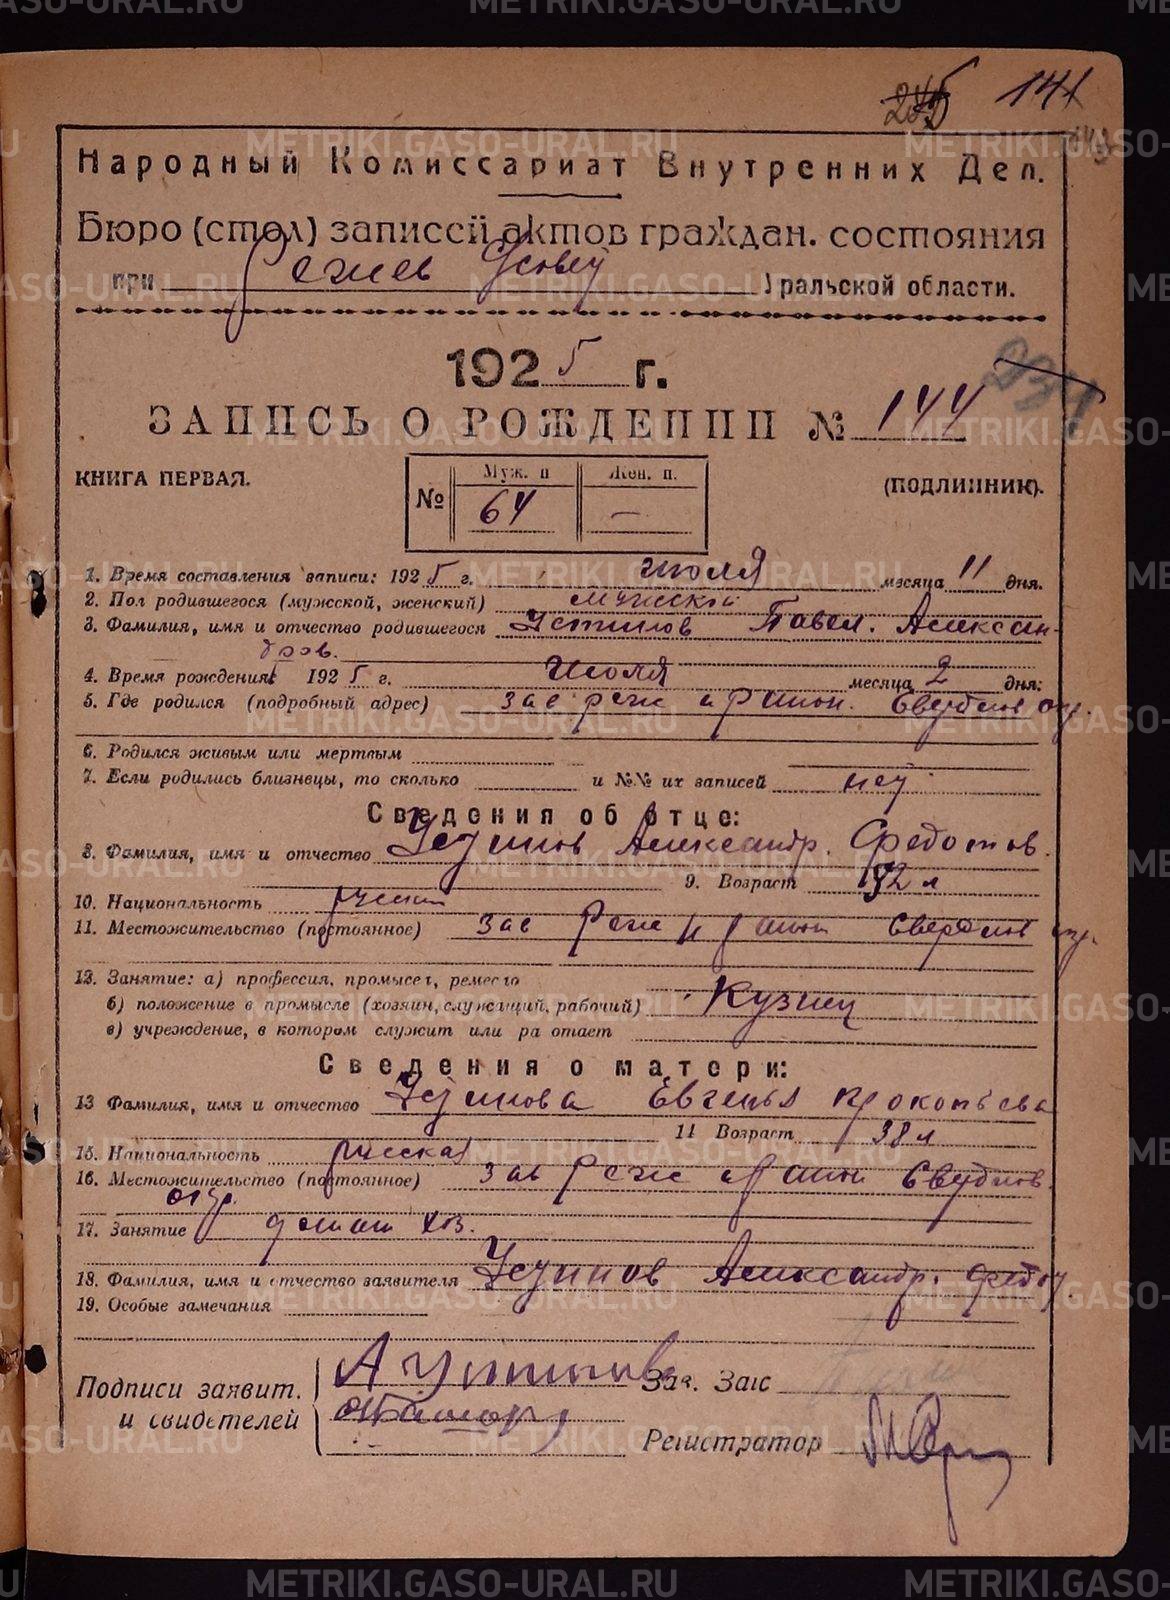 245 141
Народный Комиссариат Внутренних Дел.
Бюро (стол) записей актов граждан. состояния
при Режев Уральской области.
1925 г.
ЗАПИСЬ О РОЖДЕНИИ № 144
КНИГА ПЕРВАЯ.
Муж. п Жен. п.
(ПОДЛИННИК).
№ 64 —
1. Время составления записи: 1925 г. июля месяца 11 дня.
2. Пол родившегося (мужской, женский) мужской
3. Фамилия, имя и отчество родившегося Устинов Павел. Алексан-
дров.
4. Время рождения 1925 г. июля месяца 2 дня:
5. Где родился (подробный адрес) зав реж район.
6. Родился живым или мертвым
7. Если родились близнецы, то сколько и №№ их записей нет
Сведения об отце:
8. Фамилия, имя и отчество Устинов Александр. Федотов.
9. Возраст
10. Национальность русский
11. Местожительство (постоянное) зав Реж район Свердлов окр.
12. Занятие: а) профессия, промысел, ремесло
б) положение в промысле (хозяин, служащий, рабочий) Кузнец
в) учреждение, в котором служит или ра отает
Сведения о матери:
13 Фамилия, имя и отчество Устинова Евгенья Прокопьева
11 Возраст 38 л
15. Национальность русская
16. Местожительство (постоянное) зав Реж район Свердлов.
окр.
17. Занятие домаш хоз.
18. Фамилия, имя и отчество заявителя Устинов Александр. Федот.
19. Особые замечания
Подписи заявит. А Устинов Зав. Загс
и свидетелей
Регистратор
METRIKI.GASO-URAL.RU